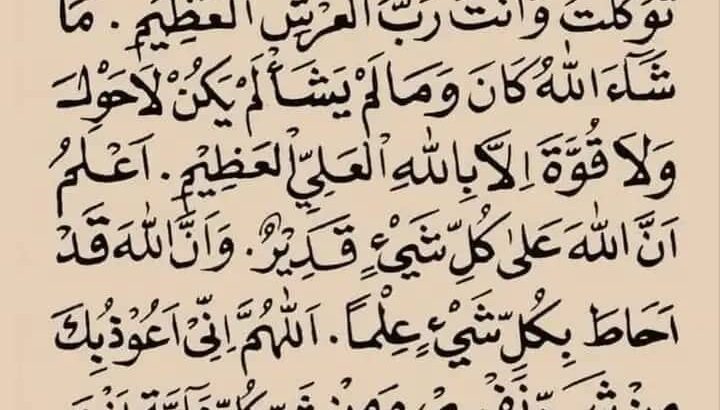 توكلت وانت رب العرش العظيم. ما
شَآءَ اللّٰهُ كَانَ وَمَا لَمْ يَشَأْ لَمْ يَكُنْ لَا حَوْلَ
وَلَا قُوَّةَ اِلَّا بِاللّٰهِ الْعَلِيِّ الْعَظِيْمِ. اَعْلَمُ
اَنَّ اللّٰهَ عَلٰى كُلِّ شَيْءٍ قَدِيْرٌ. وَاَنَّ اللّٰهَ قَدْ
اَحَاطَ بِكُلِّ شَيْءٍ عِلْمًا. اَللّٰهُمَّ اِنِّيْ اَعُوْذُ بِكَ